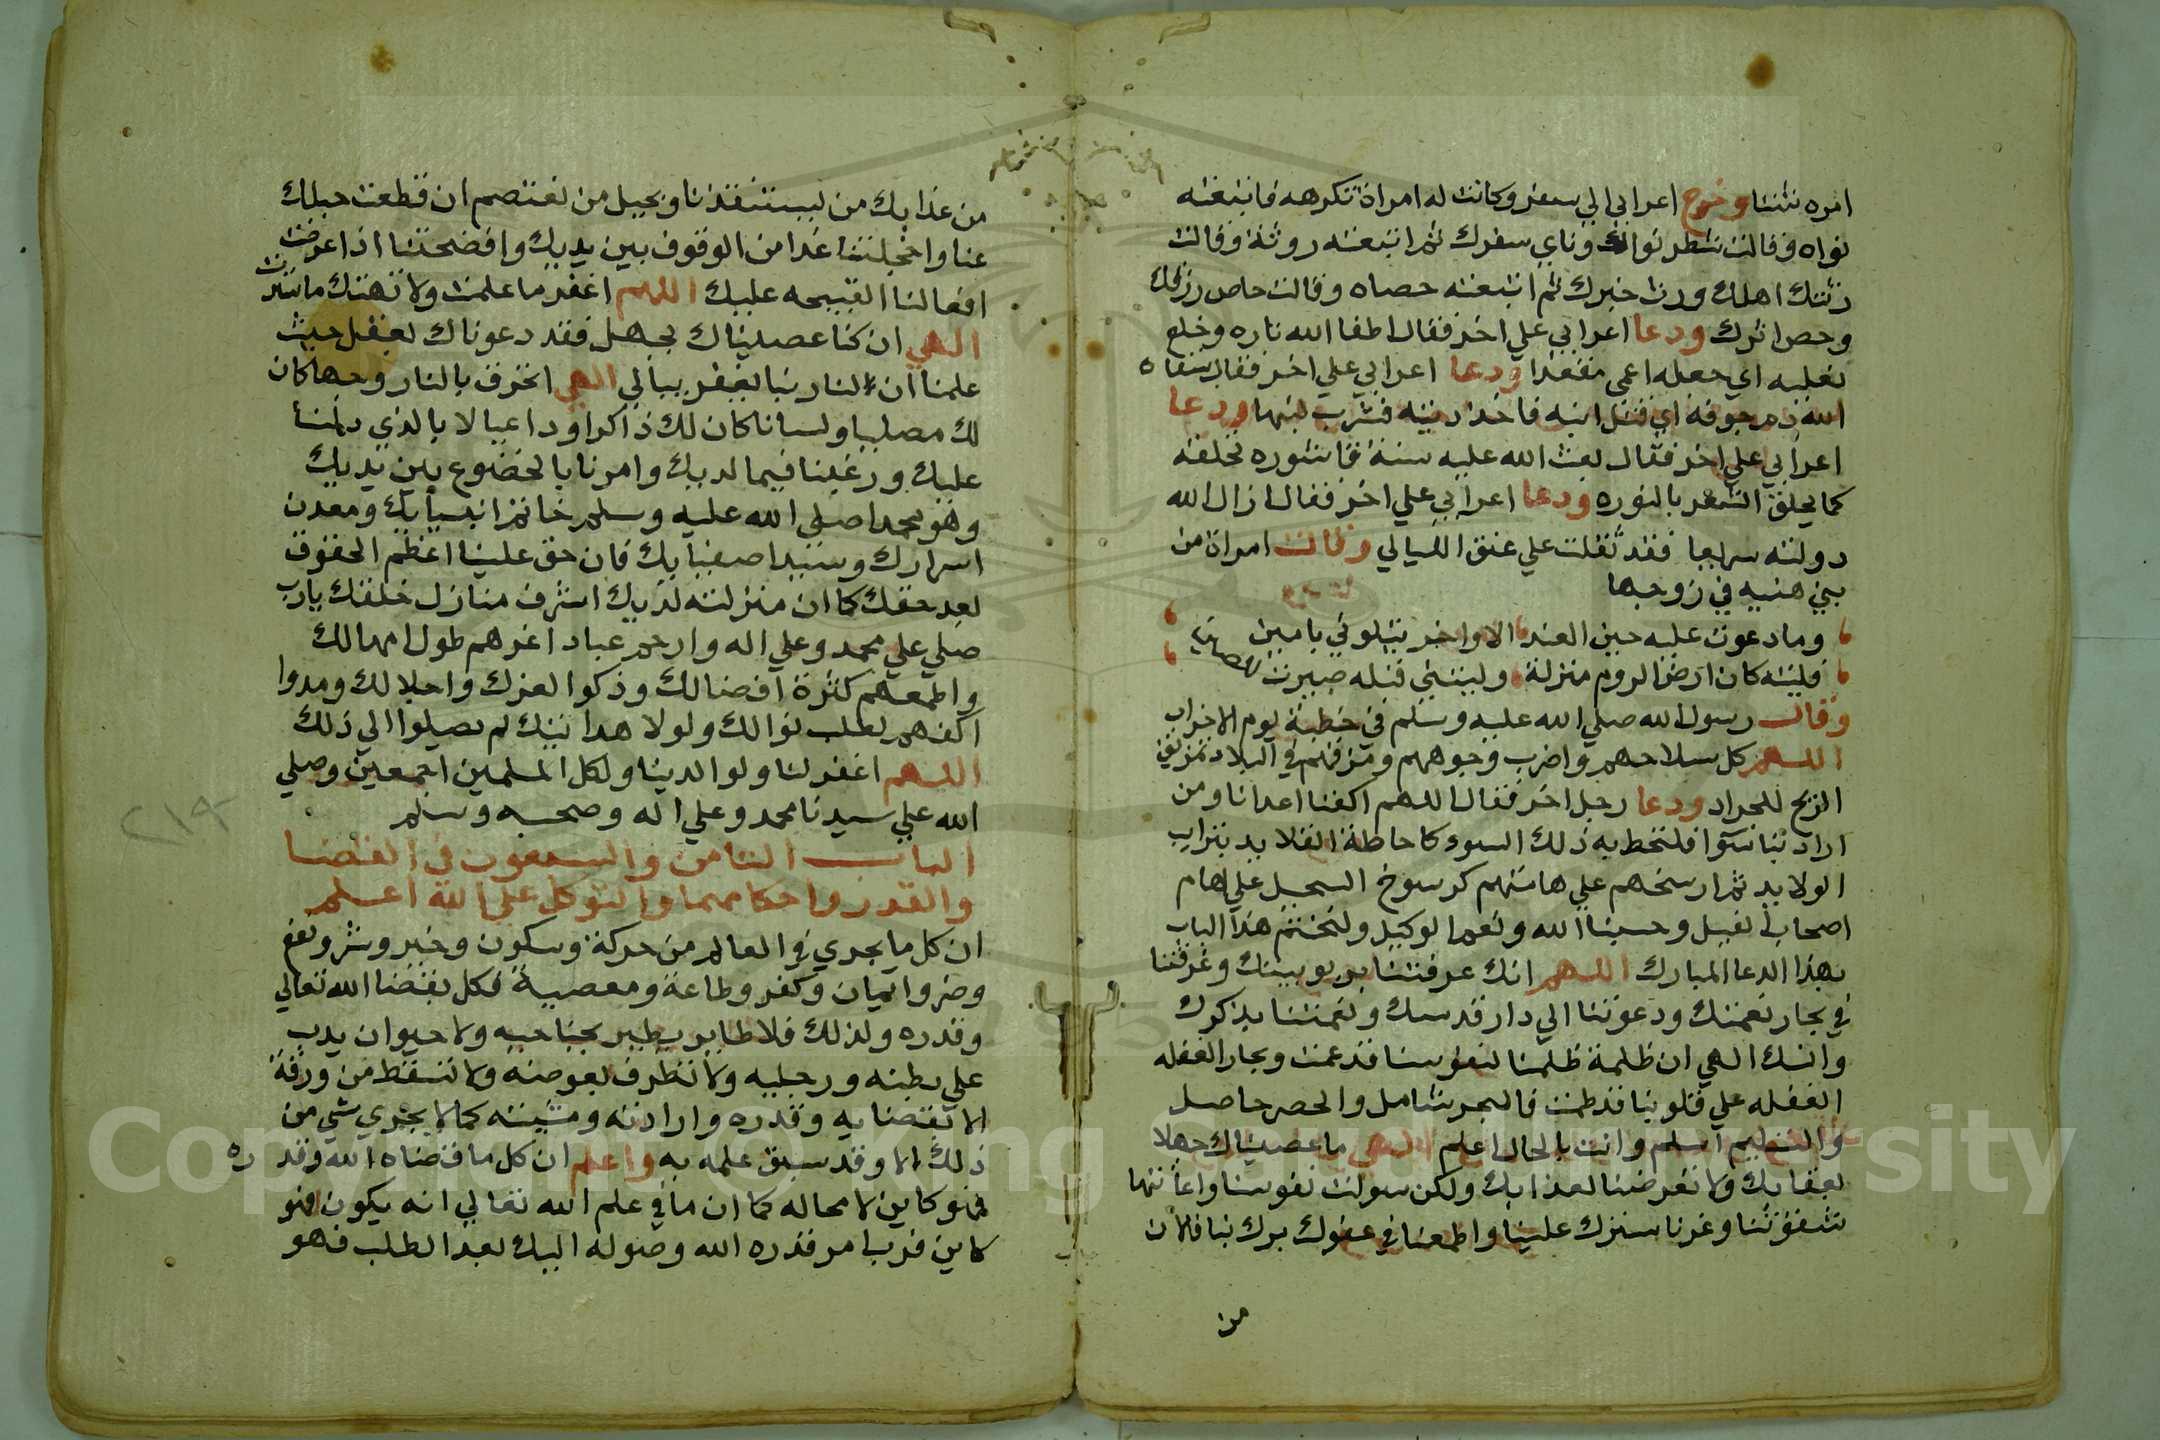 امره شتتا وخرج اعرابي الي سفر وكانت له امراة تكرهه فاتبعته
نواه وقالت شطر نواك وناي سفرك ثم اتبعته روثة وقالت
رثتك اهلك ورث خبرك ثم اتبعته حصاه وقالت حاص رزقك
وحص اثرك ودعا اعرابي علي اخر فقال اطفا الله ناره وخلع
نعليه اي جعله اعمي مقعدا ودعا اعرابي علي اخر فقال سقاه
الله دم جوفه اي قتل ابنه فاخذ ديته فشرب لبنها ودعا
اعرابي علي اخر فقال بعث الله عليه سنة قاشوره تحلقه
كما يحلق الشعر بالنوره ودعا اعرابي علي اخر فقال ازال الله
دولته سريعا فقد ثقلت علي عنق الليالي وقالت امراة من
بني ضبه في زوجها
وما دعوت عليه حين العنه الا واخر يتلوني بامين
فليته كان ارض الروم منزلة وليتني قبله صيرت للصين
وقال رسول الله صلي الله عليه وسلم في خطبة يوم الاحزاب
اللهم كل سلاحهم واضرب وجوههم ومزقهم في البلاد تمزيق
الريح للجراد ودعا رجل اخر فقال اللهم اكفنا اعدانا ومن
اراد بنا سوا فلتحط به ذلك السوء كاحاطة القلايد بترايب
الولايد ثم ارسخهم علي هامتهم كرسوخ السجيل علي هام
اصحاب الفيل وحسبنا الله ونعم الوكيل ولنختم هذا الباب
بهذا الدعا المبارك اللهم انك عرفتنا بربوبيتك وغرقتنا
في بحار نعمتك ودعوتنا الي دار قدسك ونعمتنا بذكرك
وانسك الهي ان ظلمة ظلمنا لنفوسنا قد عمت وبحار الغفله
الغفله علي قلوبنا قد طمت فالعجز شامل والحصر حاصل
والتسليم اسلم وانت بالحال اعلم الهي ما عصيناك جهلا
بعقابك ولا تعرضنا لعذابك ولكن سولت نفوسنا واعانتها
شقوتنا وغرنا سترك علينا واطمعنا في عفوك برك بنا فالان
من
من عذابك من يستنقذنا وبحبل من نعتصم ان قطعت حبلك
عنا واخجلتنا غدا من الوقوف بين يديك وافضحتنا اذا عرضت
افعالنا القبيحه عليك اللهم اغفر ما علمت ولا تهتك ما سترت
الهي ان كنا عصيناك بجهل فقد دعوناك بعقل حيث
علمنا ان لنا ربا يغفر ببالي الهي اتحرق بالنار وجها كان
لك مصليا ولسانا كان لك ذاكرا وداعيا لا بالذي دلنا
عليك ورغبنا فيما لديك وامرنا بالخضوع بين يديك
وهو محمد صلي الله عليه وسلم خاتم انبيايك ومعدن
اسرارك وسيد اصفيايك فان حق علينا اعظم الحقوق
بعد حقك كما ان منزلته لديك اشرف منازل خلقك يارب
صلي علي محمد وعلي اله وارحم عبادا غرهم طول امهالك
واطمعهم كثرة افضالك وذكوا لعزك واجلالك ومدوا
اكفهم لطلب نوالك ولولا هدايتك لم يصلوا الي ذلك
اللهم اغفر لنا ولوالدينا ولكل المسلمين اجمعين وصلي
الله علي سيدنا محمد وعلي اله وصحبه وسلم
الباب الثامن والسبعون في القضا
والقدر واحكامهما والتوكل علي الله اعلم
ان كل ما يجري في العالم من حركة وسكون وخير وشر ونفع
وضر وايمان وكفر وطاعة ومعصية فكل بقضا الله تعالي
وقدره ولذلك فلا طاير يطير بجناحيه ولا حيوان يدب
علي بطنه ورجليه ولا تطرف بعوضه ولا تسقط من ورقة
الا بقضايه وقدره وارادته ومشيته كما لا يجري شي من
ذلك الا وقد سبق علمه به واعلم ان كل ما قضاه الله وقدره
فهو كاين لا محاله كما ان ما في علم الله تعالي انه يكون فهو
كاين فرب امر قدره الله وصوله اليك بعد الطلب فهو
٢١٩
Copyright © King Saud University